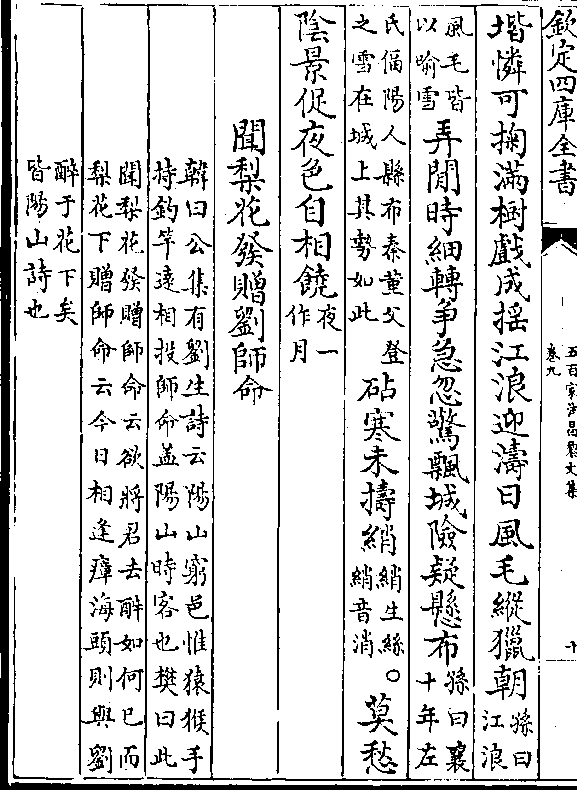 欽定四庫全書
五百家注昌黎文集
卷九
十
堦憐可掬滿樹戲成揺江浪迎濤日風毛縱獵朝孫曰江浪
風毛皆以喻雪弄閒時細轉爭急忽驚飄城險疑懸布孫曰襄十年左
氏偪陽人縣布秦堇父登之雪在城上其勢如此砧寒未擣綃綃生絲綃音消○莫愁
陰景促夜色自相饒夜一作月
聞梨花發贈劉師命
韓曰公集有劉生詩云陽山窮邑惟猿猴手
持釣竿逺相投師命葢陽山時客也樊曰此
聞梨花發贈師命云欲將君去醉如何已而
梨花下贈師命云今日相逢瘴海頭則與劉
醉于花下矣
皆陽山詩也